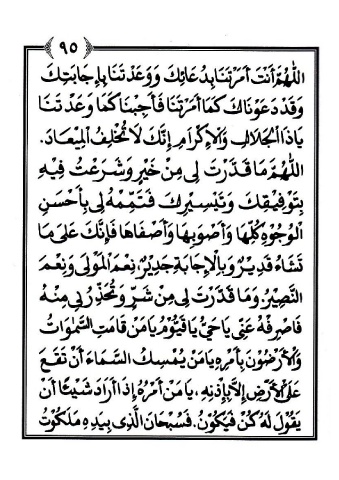 ٩٥
اَللّٰهُمَّ أَنْتَ أَمَرْتَنَا بِدُعَائِكَ وَوَعَدْتَنَا بِإِجَابَتِكَ
وَقَدْ دَعَوْنَاكَ كَمَا أَمَرْتَنَا فَأَجِبْنَا كَمَا وَعَدْتَنَا
يَاذَا الْجَلَالِ وَالْإِكْرَامِ إِنَّكَ لَا تُخْلِفُ الْمِيْعَادَ.
اَللّٰهُمَّ مَا قَدَّرْتَ لِى مِنْ خَيْرٍ وَشَرَعْتُ فِيْهِ
بِتَوْفِيْقِكَ وَتَيْسِيْرِكَ فَتَمِّمْهُ لِى بِأَحْسَنِ
الْوُجُوْهِ كُلِّهَا وَأَصْوَبِهَا وَأَصْفَاهَا فَإِنَّكَ عَلَى مَا
تَشَاءُ قَدِيْرٌ وَبِالْإِجَابَةِ جَدِيْرٌ نِعْمَ الْمَوْلَى وَنِعْمَ
النَّصِيْرُ وَمَا قَدَّرْتَ لِى مِنْ شَرٍّ وَتُحَذِّرُنِى مِنْهُ
فَاصْرِفْهُ عَنِّى يَاحَيُّ يَاقَيُّوْمُ يَامَنْ قَامَتِ السَّمٰوَاتُ
وَالْأَرَضُوْنَ بِأَمْرِهِ يَامَنْ يُمْسِكُ السَّمَاءَ أَنْ تَقَعَ
عَلَى الْأَرْضِ إِلَّا بِإِذْنِهِ ، يَامَنْ أَمْرُهُ إِذَا أَرَادَ شَيْئًا أَنْ
يَقُوْلَ لَهُ كُنْ فَيَكُوْنُ. فَسُبْحَانَ الَّذِى بِيَدِهِ مَلَكُوْتُ